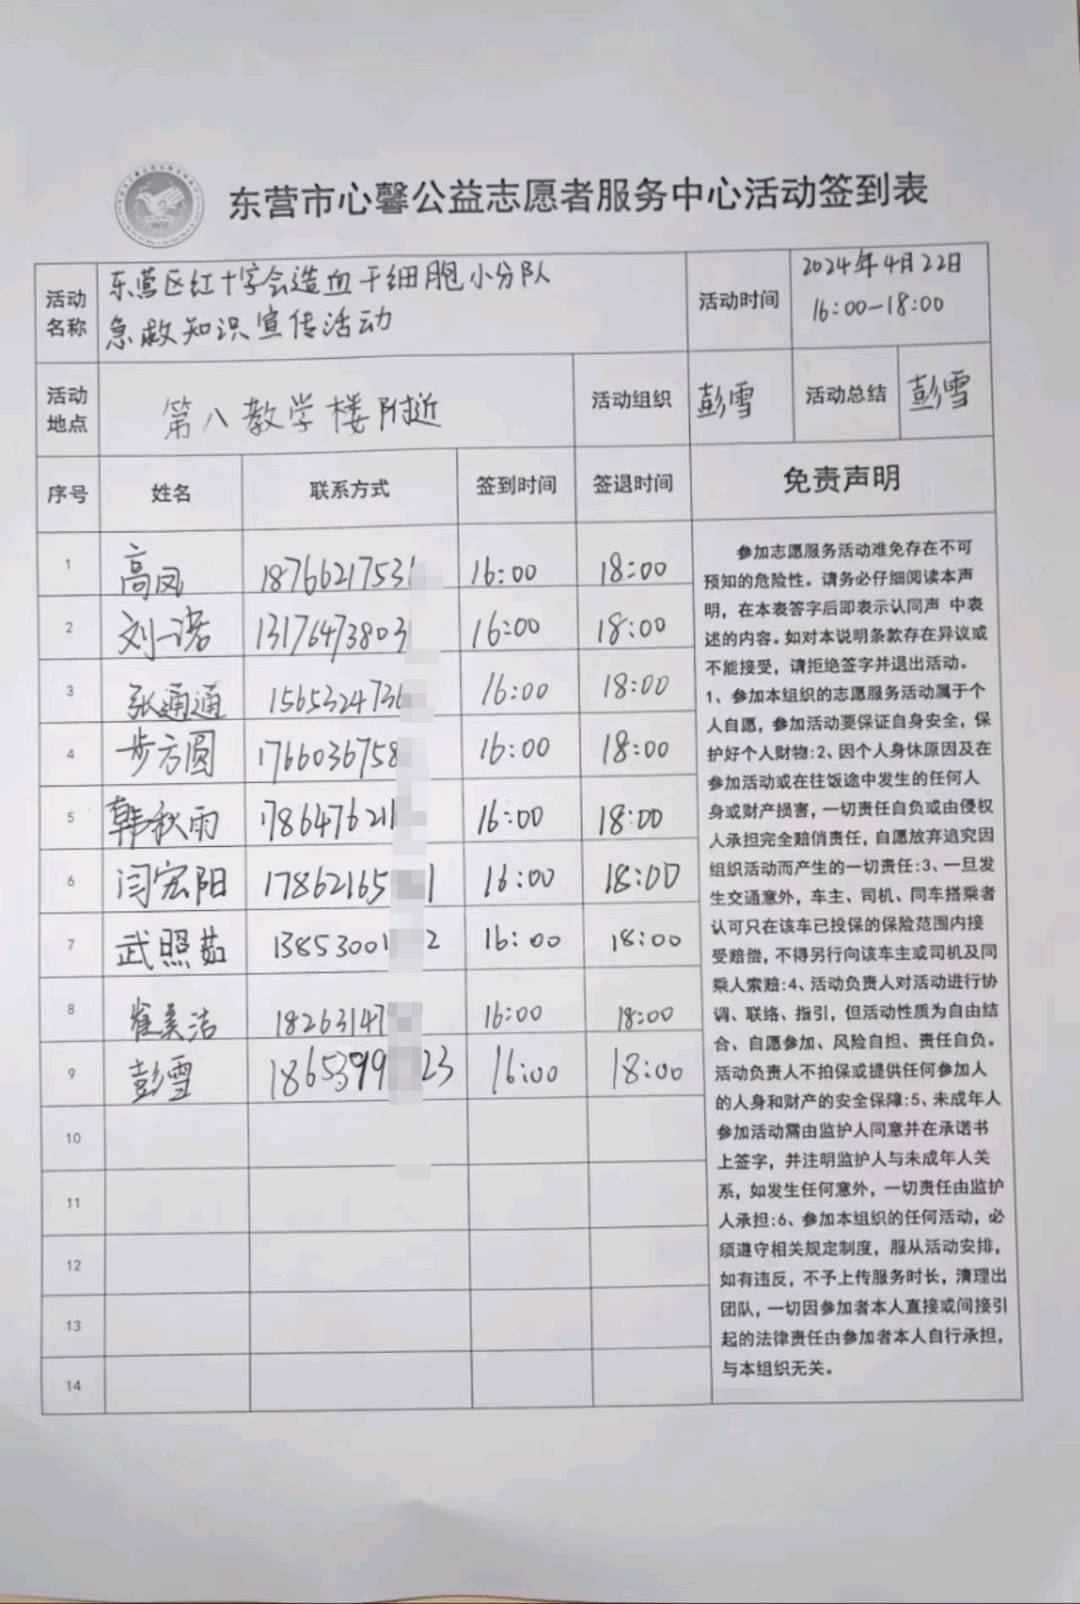 东营市心馨公益志愿者服务中心活动签到表
活动名称 东营区红十字会造血干细胞小分队
急救知识宣传活动
活动时间 2024年4月22日
16:00-18:00
活动地点 第八教学楼附近 活动组织 彭雪 活动总结 彭雪
序号 姓名 联系方式 签到时间 签退时间 免责声明
1 高凤 1876621753 16:00 18:00
2 刘一诺 1317647380 16:00 18:00
3 张通通 1565324736 16:00 18:00
4 步方圆 1766036758 16:00 18:00
5 韩秋雨 1786476211 16:00 18:00
6 闫宏阳 17862165 1 16:00 18:00
7 武照茹 13853001 2 16:00 18:00
8 崔美洁 18263147 16:00 18:00
9 彭雪 1865399 23 16:00 18:00
10
11
12
13
14
参加志愿服务活动难免存在不可
预知的危险性。请务必仔细阅读本声
明，在本表答字后即表示认同声 中表
述的内容。如对本说明条款存在异议或
不能接受，请拒绝签字并退出活动。
1、参加本组织的志愿服务活动属于个
人自愿，参加活动要保证自身安全，保
护好个人财物:2、因个人身休原因及在
参加活动或在往饭途中发生的任何人
身或财产损害，一切责任自负或由侵权
人承担完全赔俏责任，自愿放弃追究因
组织活动而产生的一切责任:3、一旦发
生交通意外，车主、司机、同车搭乘者
认可只在该车已投保的保险范围内接
受赔偿，不得另行向该车主或司机及同
乘人索赔:4、活动负责人对活动进行协
调、联络、指引，但活动性质为自由结
合、自愿参加、风险自担、责任自负。
活动负责人不拍保或提供任何参加人
的人身和财产的安全保障:5、未成年人
参加活动需由监护人同意并在承诺书
上签字，并注明监护人与未成年人关
系，如发生任何意外，一切责任由监护
人承担:6、参加本组织的任何活动，必
须遵守相关规定制度，服从活动安排，
如有违反，不予上传服务时长，清理出
团队，一切因参加者本人直接或间接引
起的法律责任由参加者本人自行承担，
与本组织无关。